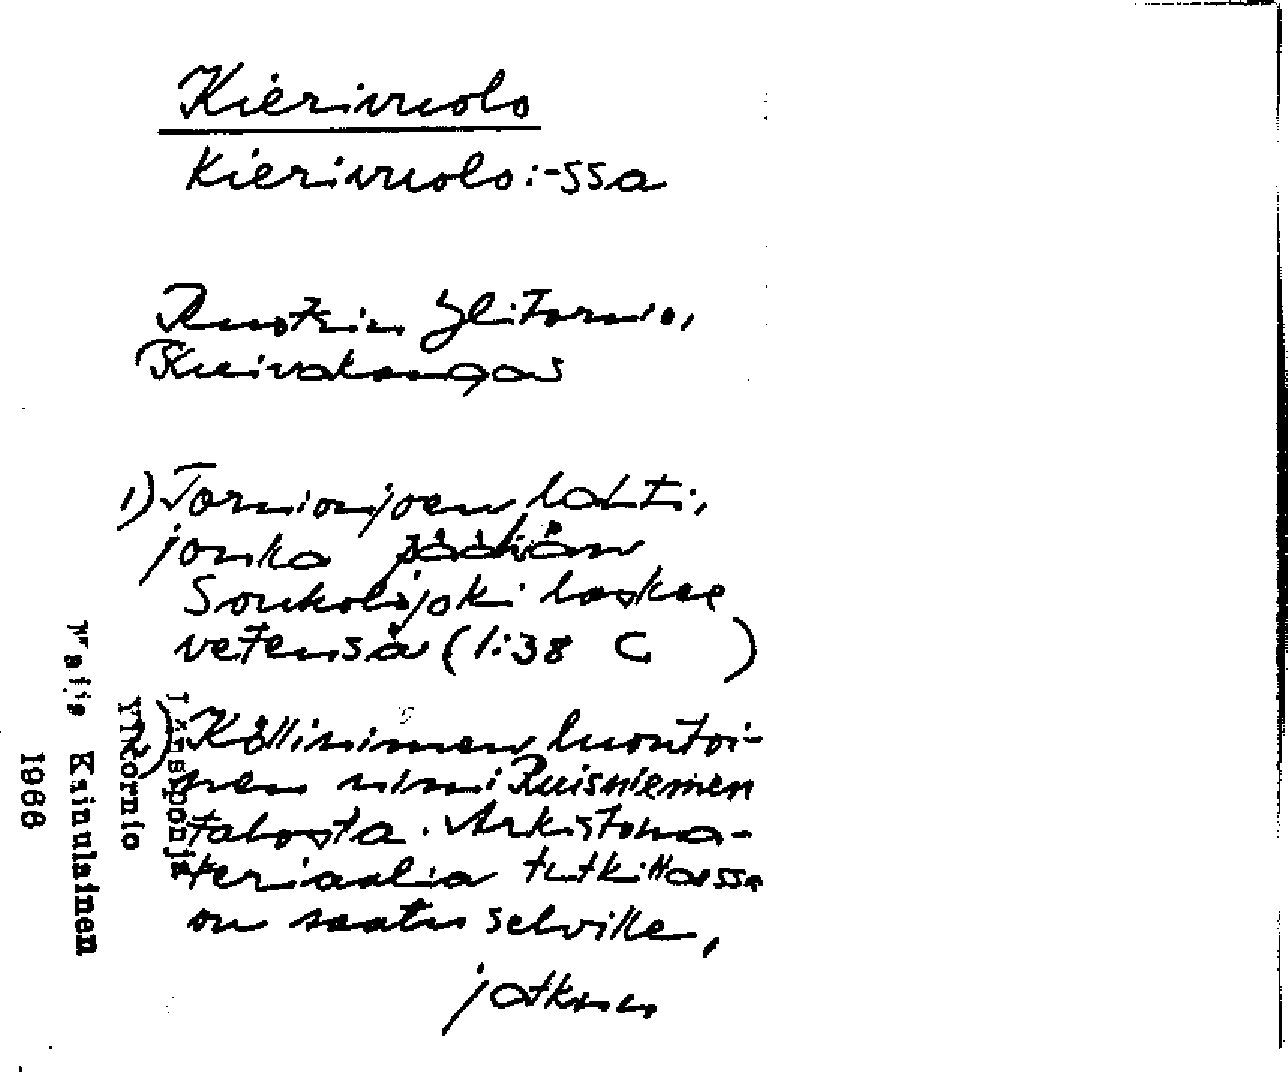 Kierivuolo
Kierivuolo:-ssa
Ruotsin Ylitornio,
Kuivakangas
1) Tornionjoen lahti,
jonka päähän
Soukolojoki laskee
vetensä (1:38 C )
2) Köllinimen luontoi-
nen nimi Ruisniemen
talosta. Arkistoma-
teriaalia tutkittaessa
on saatu selville,
jatkuu
Länsipohja
Ylitornio
Maija Kainulainen
1966